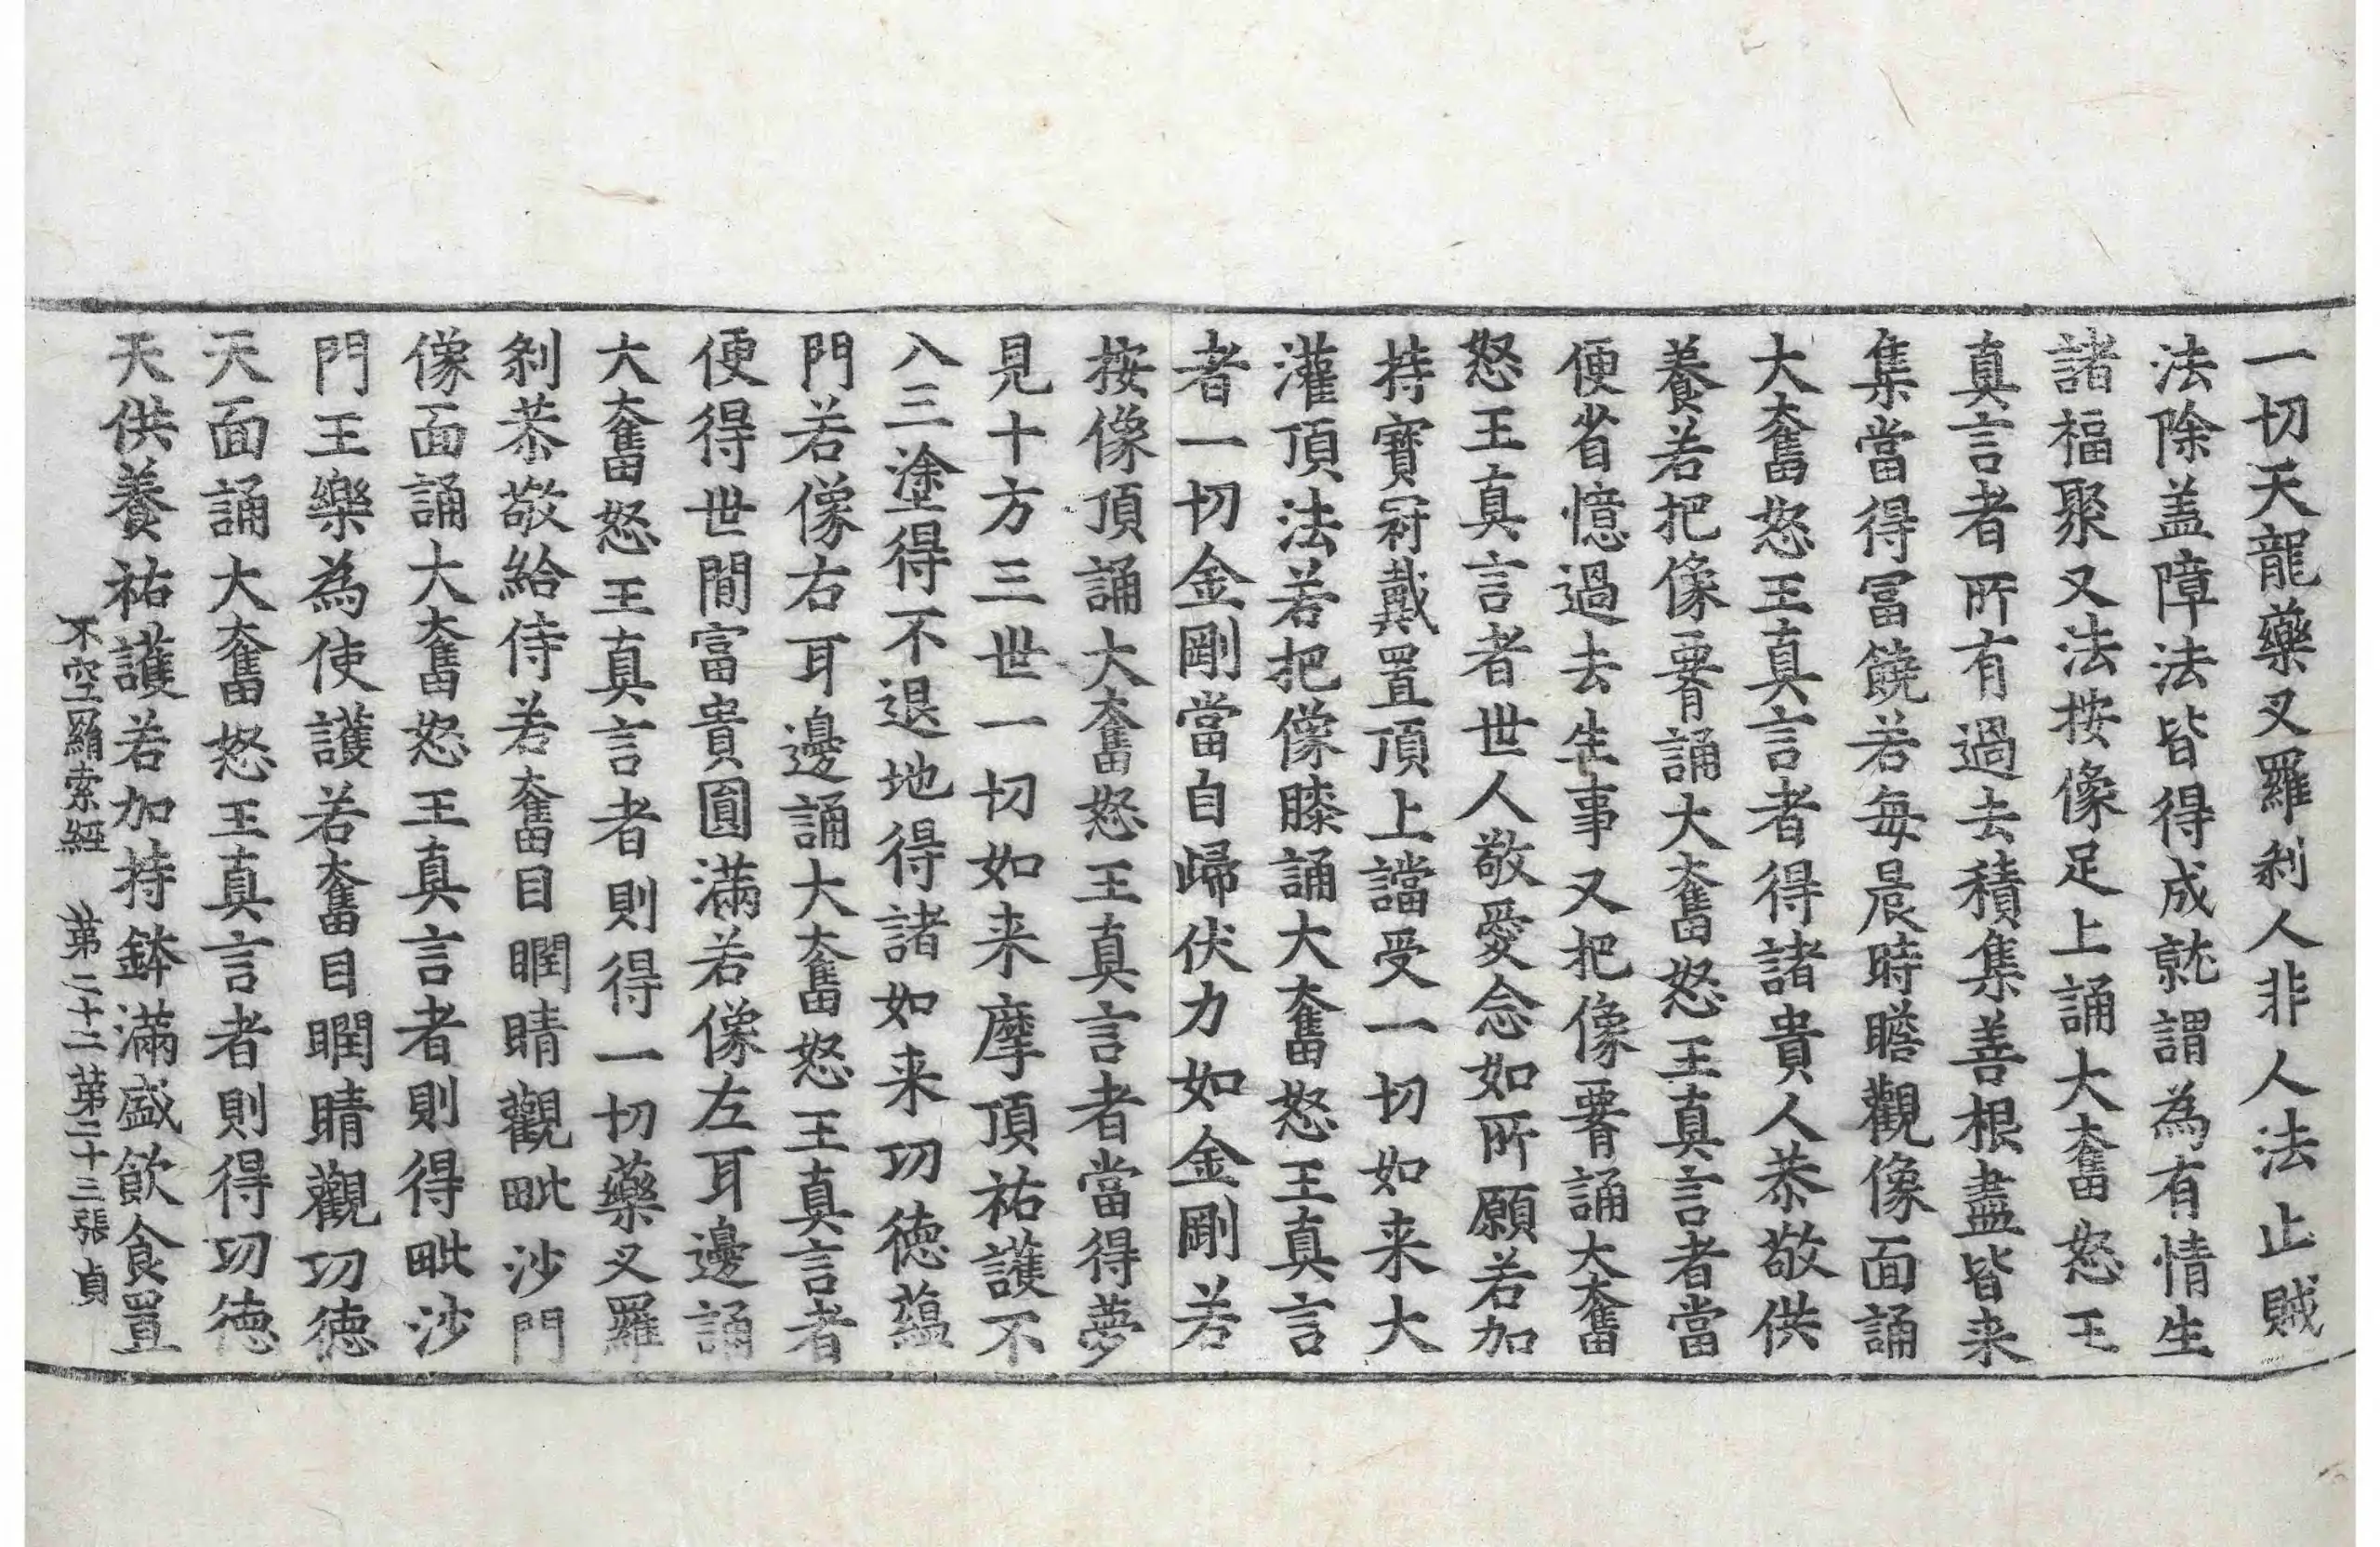 一切天龍藥叉羅刹人非人法止賊
法除盖障法皆得成就謂為有情生
諸福聚又法按像足上誦大奮怒王
真言者所有過去積集善根盡皆来
集當得冨饒若每晨時瞻觀像面誦
大奮怒王真言者得諸貴人恭敬供
養若把像𦝫誦大奮怒王真言者當
便省憶過去生事又把像𦝫誦大奮
怒王真言者世人敬愛念如所願若加
持寶冠戴置頂上譡受一切如来大
灌頂法若把像膝誦大奮怒王真言
者一切金剛當自歸伏力如金剛若
按像頂誦大奮怒王真言者當得夢
見十方三世一切如来摩頂祐護不
八三塗得不退地得諸如来功徳蕴
門若像右耳邊誦大奮怒王真言者
便得世間富貴圓滿若像左耳邊誦
大奮怒王真言者則得一切藥叉羅
刹恭敬給侍若奮目瞤睛觀毗沙門
像面誦大奮怒王真言者則得毗沙
門王樂為使護若奮目瞤睛觀功徳
天面誦大奮怒王真言者則得功徳
天供養祐護若加持鉢滿盛飲食置
不空羂索經 第二十二 第二十三張 貞